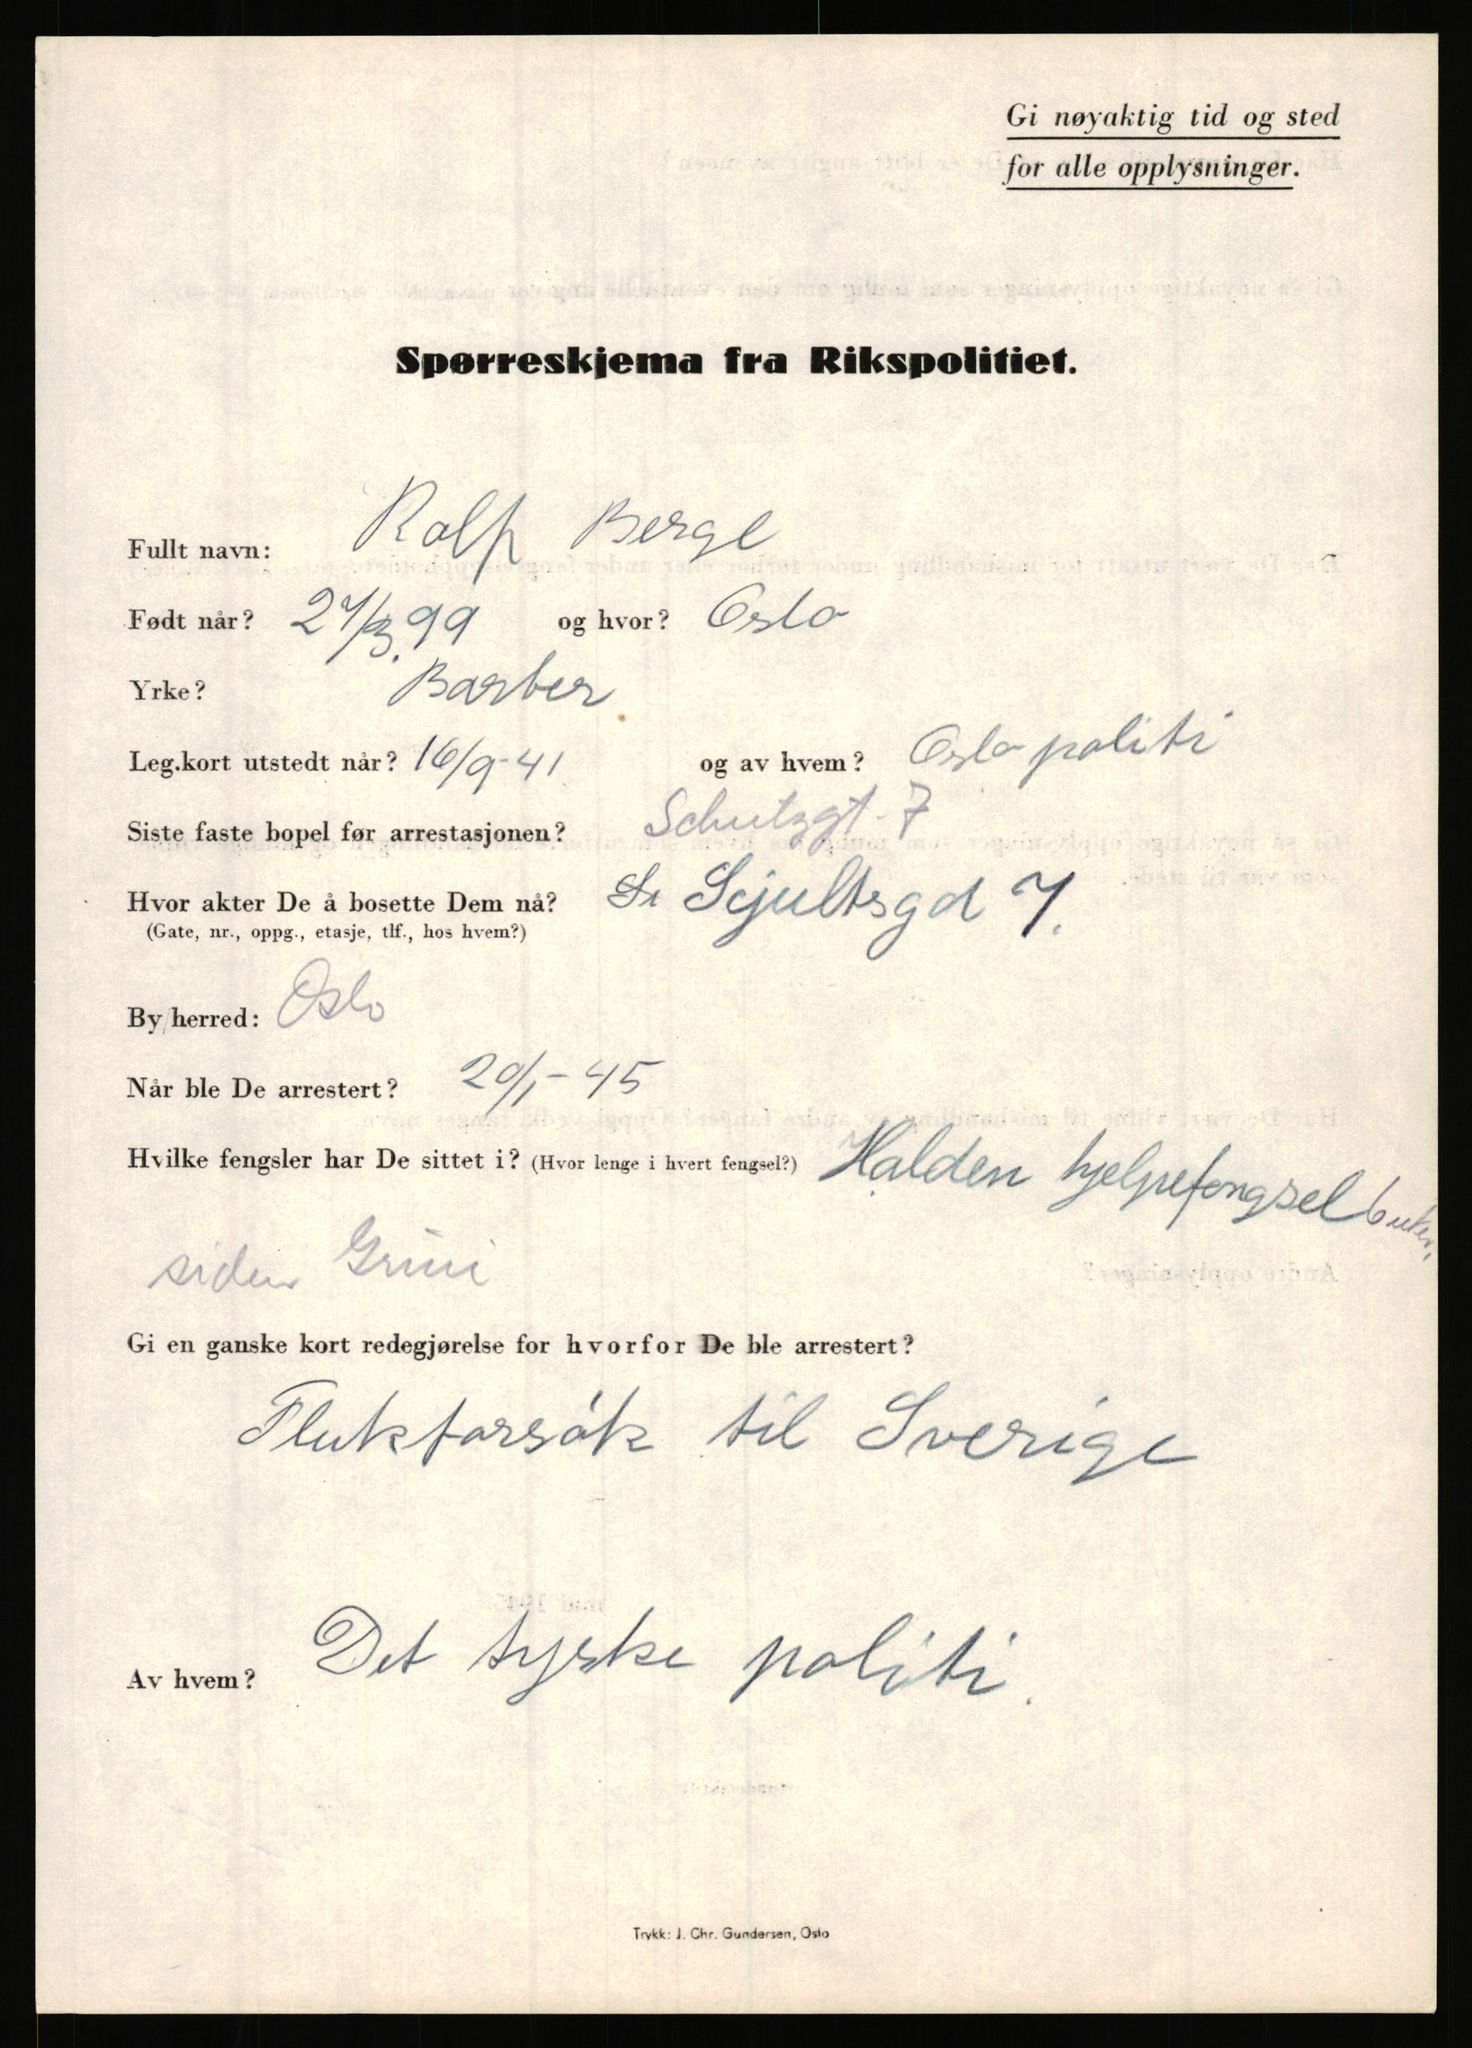 Gi nøyaktig tid og sted
for alle opplysninger.
Spørreskjema fra Rikspolitiet.
Fullt navn: Rolf Berge
Født når? 27/3.99 og hvor? Oslo
Yrke? Barber
Leg.kort utstedt når? 16/9-41 og av hvem? Oslo politi
Siste faste bopel før arrestasjonen? Schutzgt. 7
Hvor akter De å bosette Dem nå? Sjultsgd 7.
(Gate, nr., oppg., etasje, tlf., hos hvem?)
By/herred: Oslo
Når ble De arrestert? 20/1-45
Hvilke fengsler har De sittet i? (Hvor lenge i hvert fengsel?) Halden hjelpefengsel 6 uker,
siden Grini
Gi en ganske kort redegjørelse for hvorfor De ble arrestert?
Fluktforsök til Sverige
Av hvem? Det tyske politi.
Trykk: J. Chr. Gundersen, Oslo